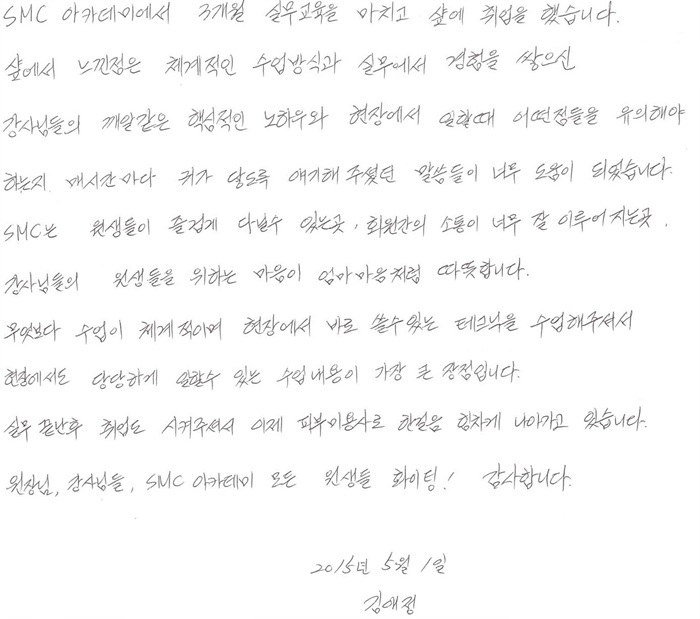 SMC 아카데미에서 3개월 실무교육을 마치고 샾에 취업을 했습니다.
샾에서 느낀점은 체계적인 수업방식과 실무에서 경험을 쌓으신
강사님들의 깨알같은 핵심적인 노하우와 현장에서 일할때 어떤점들을 유의해야
하는지 매시간마다 귀가 닳도록 얘기해 주셨던 말씀들이 너무 도움이 되었습니다.
SMC는 원생들이 즐겁게 다닐수 있는곳, 회원간의 소통이 너무 잘 이루어지는곳,
강사님들의 원생들을 위하는 마음이 엄마마음처럼 따뜻합니다.
무엇보다 수업이 체계적이며 현장에서 바로 쓸수있는 테크닉을 수업해주셔서
현장에서도 당당하게 일할수 있는 수업내용이 가장 큰 장점입니다.
실무 끝난후 취업도 시켜주셔서 이제 피부미용사로 한걸음 힘차게 나아가고 있습니다.
원장님, 강사님들, SMC 아카데미 모든 원생들 화이팅! 감사합니다.
2015년 5월 1일
김애정